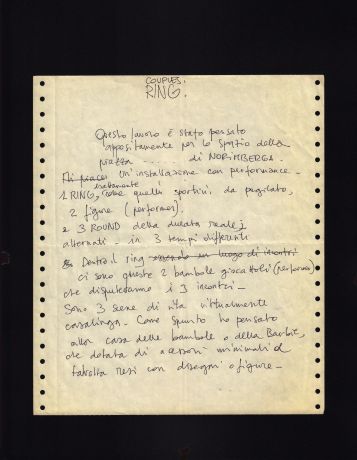 COUPLES.
RING.
Questo lavoro è stato pensato
appositamente per lo spazio della
piazza ....... di NORIMBERGA.
Mi piaceva Un'installazione con performance.
esattamente
1 RING, come quelli sportivi, da pugilato,
2 figure (performer),
e 3 ROUND della durata reale,
alternati - in 3 tempi differenti
Dentro il ring essendo un luogo di incontri
ci sono queste 2 bambole giocattoli (performer)
che disputeranno i 3 incontri -
Sono 3 scene di vita virtualmente
casalinga - Come spunto ho pensato
alla casa delle bambole o della Barbie,
che dotata di accessori minimali
talvolta resi con disegni o figure -